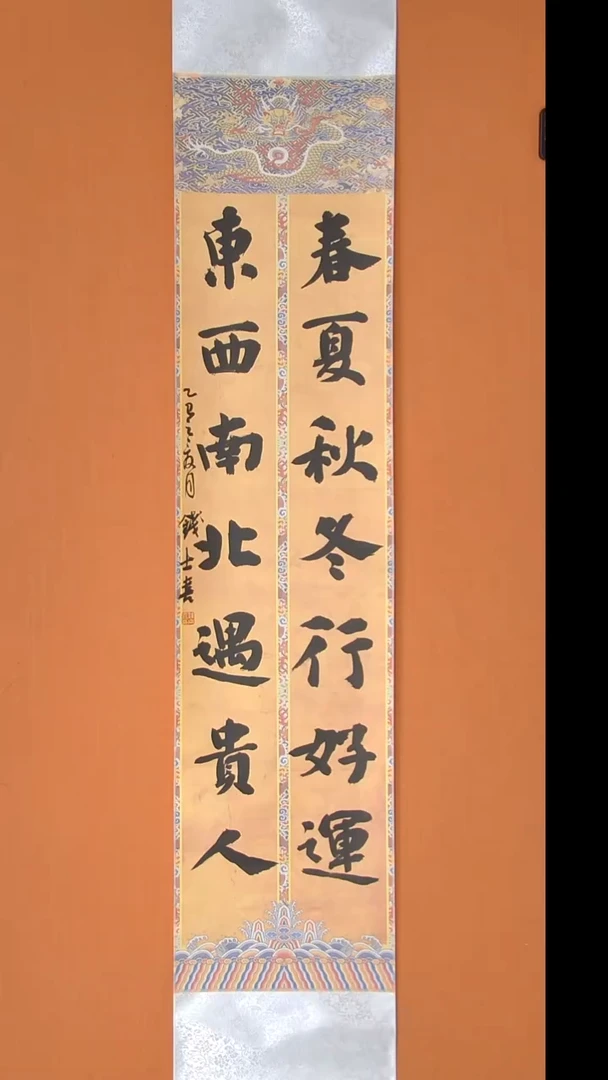 春夏秋冬行好運
東西南北遇貴人
月 錢士喜